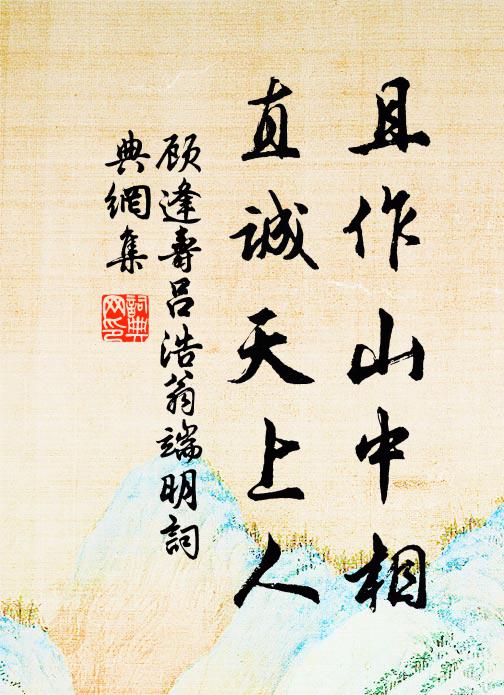 且作山中相
直诚天上人
顾逢寿吕浩翁端明词
典网集
词典网印